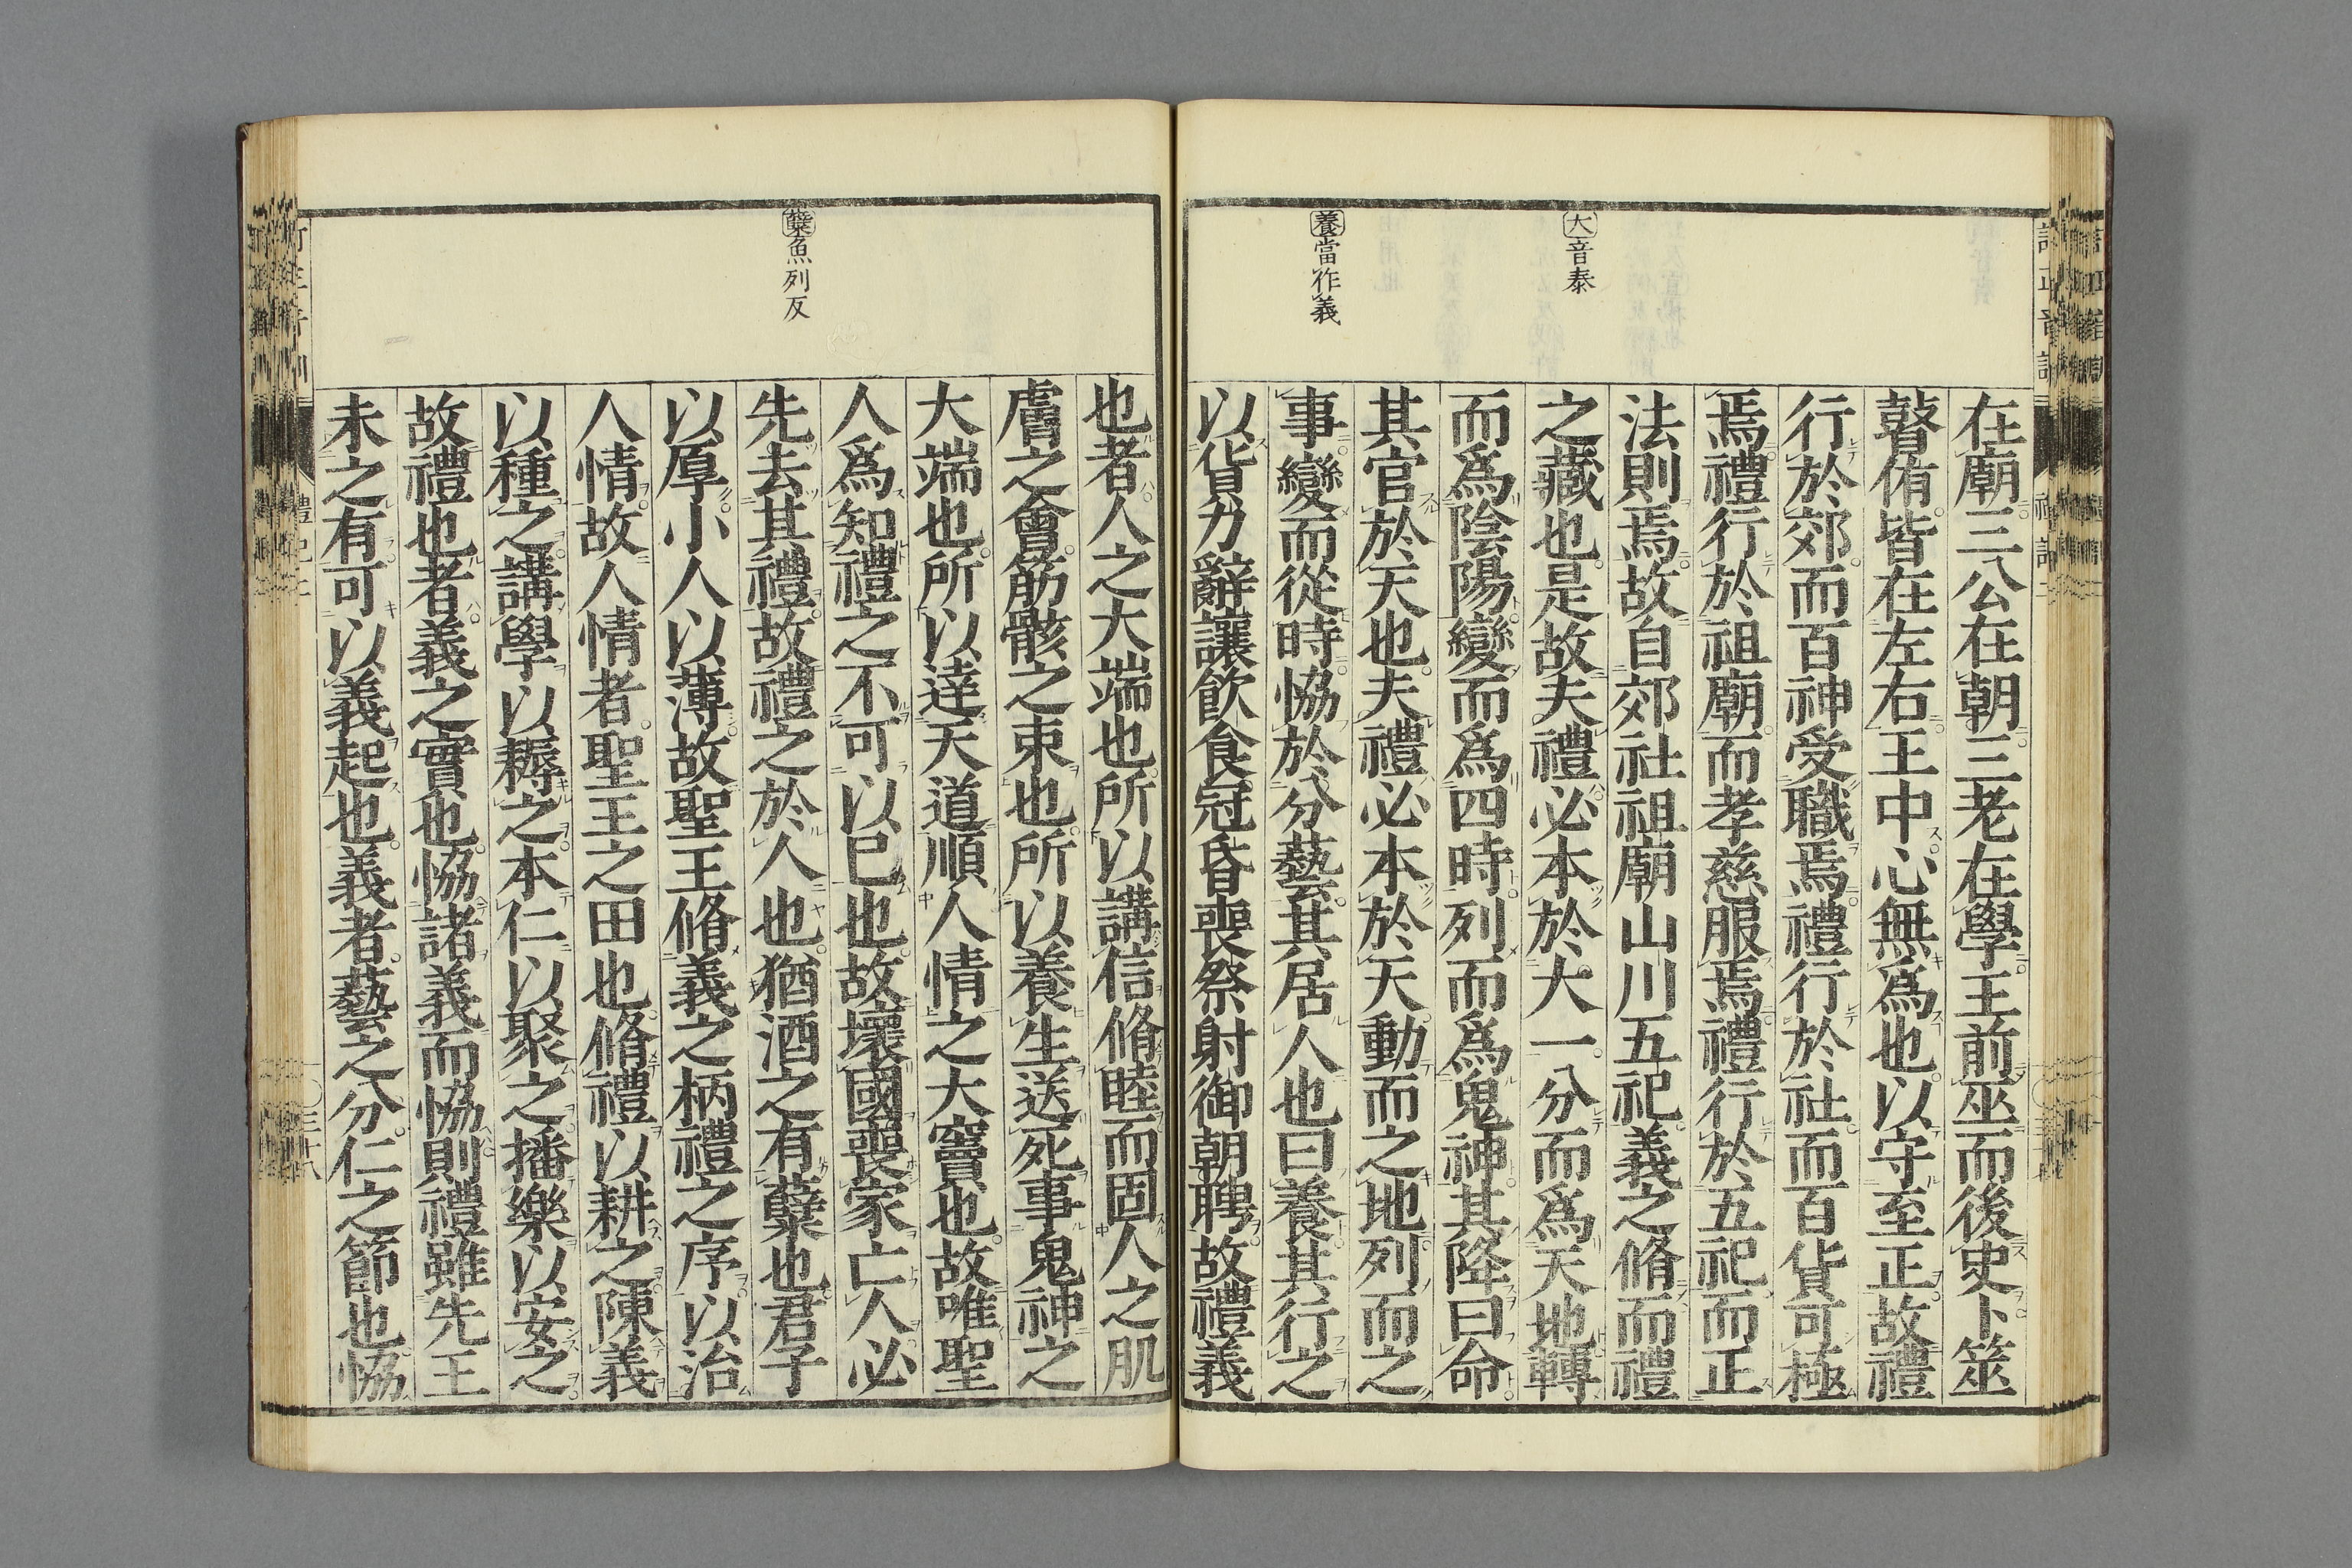 大音泰
養當作義
在廟三公在朝三老在學王前巫而後史卜筮
瞽侑皆在左右王中心無爲也以守至正故禮
行於郊而百神受職焉禮行於社而百貨可極
焉禮行於祖廟而孝慈服焉禮行於五祀而正
法則焉故自郊社祖廟山川五祀義之脩而禮
之藏也是故夫禮必本於大一分而爲天地轉
而爲陰陽變而爲四時列而爲鬼神其降曰命
其官於天也夫禮必本於天動而之地列而之
事變而從時恊於分藝其居人也曰養其行之
以貨力辭讓飮食冠昏喪祭射御朝聘故禮義
糵魚列反
也者人之大端也所以講信脩睦而固人之肌
膚之會筋骸之束也所以養生送死事鬼神之
大端也所以達天道順人情之大竇也故唯聖
人爲知禮之不可以已也故壞國喪家亡人必
先去其禮故禮之於人也猶酒之有糵也君子
以厚小人以薄故聖王脩義之柄禮之序以治
人情故人情者聖王之田也脩禮以耕之陳義
以種之講學以耨之本仁以聚之播樂以安之
故禮也者義之實也恊諸義而恊則禮雖先王
未之有可以義起也義者藝之分仁之節也恊
禮記二
三十八